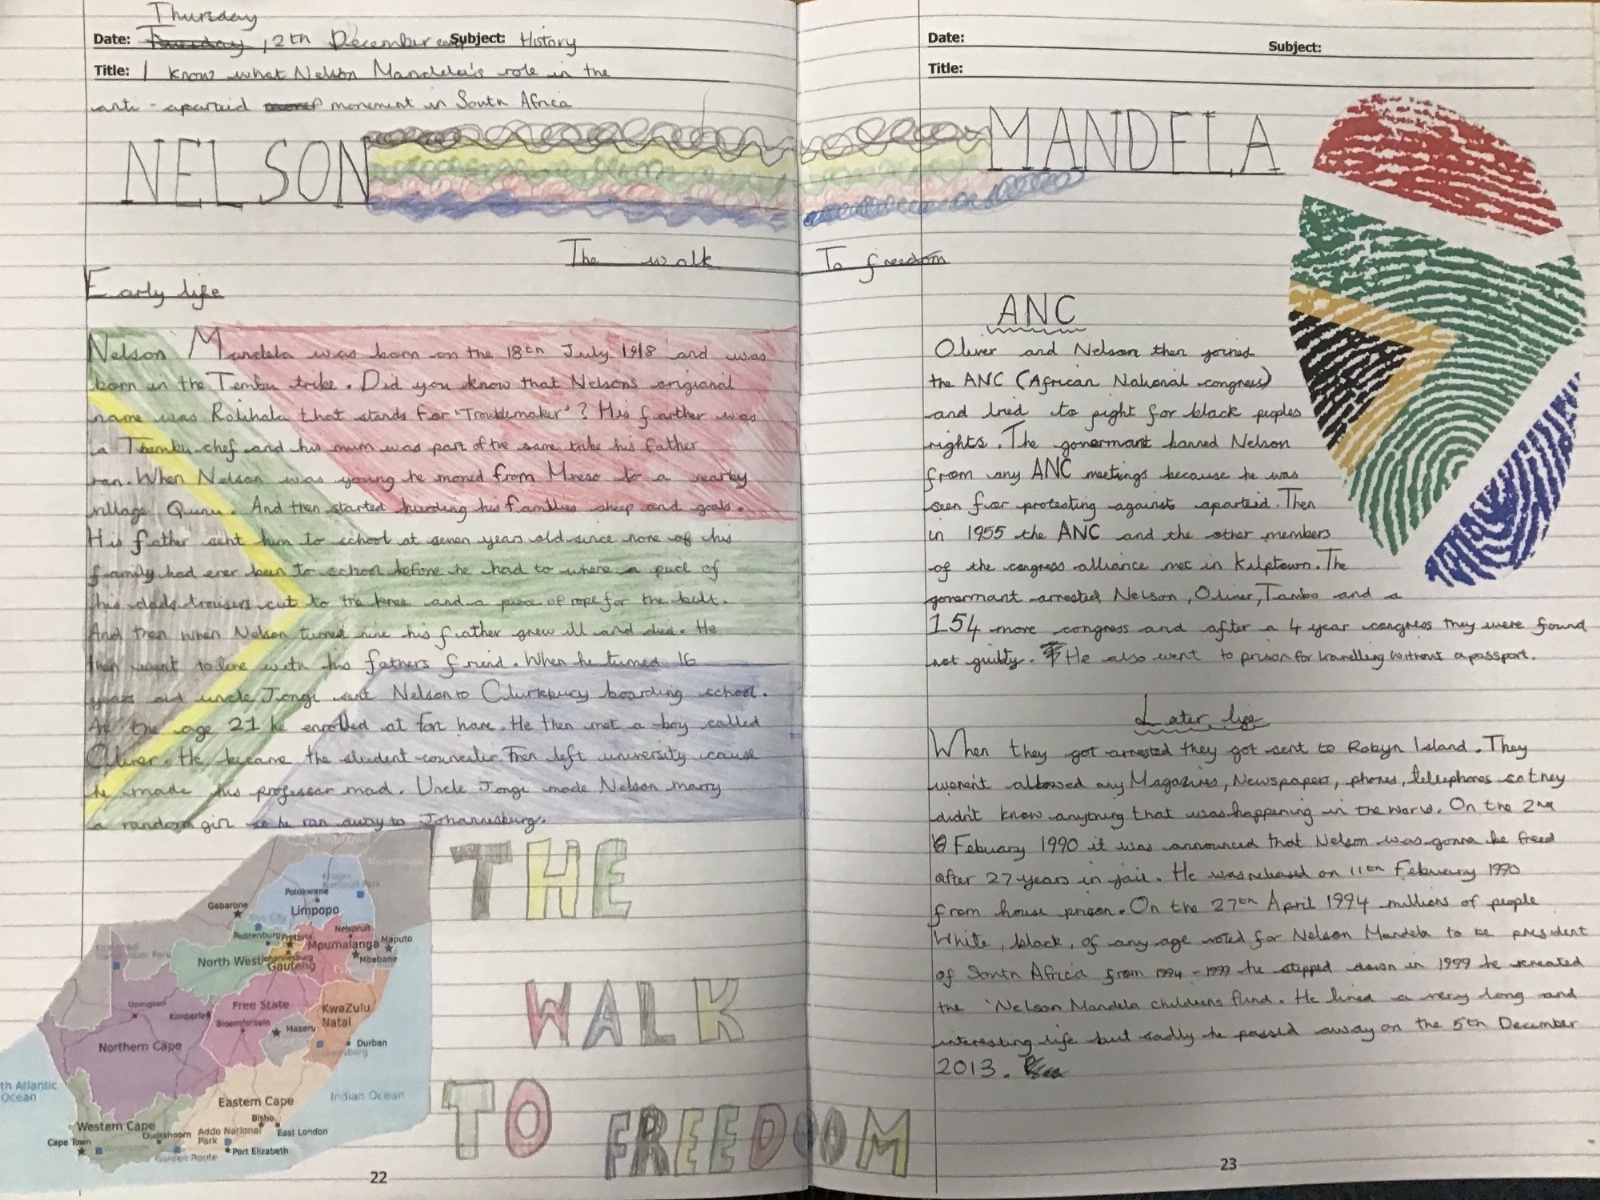 Thursday
Date: Tuesday, 12th December Subject: History
Title: I know what Nelson Mandela's role in the
anti-aparteid movement in South Africa
NELSON
The walk
Early life
Nelson Mandela was born on the 18th July 1918 and was
born in the Tembu tribe. Did you know that Nelson's origianal
name was Rolihala that stands for 'Troublemaker'? His farther was
a Thembu chef and his mum was part of the same tribe his father
ran. When Nelson was young he moved from Mveso to a nearby
village Qunu. And then started hurding his families sheep and goats.
His father sent him to school at seven years old since none of his
family had ever been to school before he had to where a of
his dads trousers cut to the knee and a piece of rope for the belt.
And then when Nelson turned nine his father grew ill and died. He
then went to live with his fathers friend. When he turned 16
years old uncle Jongi sent Nelson to Clurkbury boarding school.
At the age 21 he enrolled at fort hare. He then met a boy called
Oliver. He became the student then left university cause
he made his professor mad. Uncle Jongi made Nelson marry
a random girl so he ran away to Johannesburg.
Kruger
National Park
Polokwane
Limpopo
Gabarone
Sun City
Rustenburg
Pretoria
Nelspruit
Mpumalanga
Maputo
Mbabane
North West
Johannesburg
Gauteng
Upington
Kimberley
Free State
Bloemfontein
KwaZulu
Natal
Maseru
Durban
Northern Cape
th Atlantic
Ocean
Eastern Cape
Indian Ocean
Western Cape
Bisho
East London
Cape Town
Oudtshoorn
Addo National
Park
Garden Route
Port Elizabeth
THE
WALK
TO FREEDOM
22
Date:
Subject:
Title:
MANDELA
To freedom
ANC
Oliver and Nelson then joined
the ANC (African National congress)
and tried to fight for black peoples
rights. The goverment banned Nelson
from any ANC meetings because he was
seen for protesting against aparteid. Then
in 1955 the ANC and the other members
of the congress alliance met in Kliptown. The
goverment arrested Nelson, Oliver, Tambo and a
154 more congress and after a 4 year congress they were found
not guilty. He also went to prison for travelling without a passport.
Later life
When they got arrested they got sent to Robyn Island. They
weren't allowed any Magazines, Newspapers, phones, telephones so they
didn't know anything that was happening in the world. On the 2nd
Febuary 1990 it was announced that Nelson was gonna be freed
after 27 years in jail. He was released on 11th Febuary 1990
from house prison. On the 27th April 1994 millions of people
White, black, of any age voted for Nelson Mandela to be president
of South Africa from 1994-1999 he stepped down in 1999 he created
the 'Nelson Mandela childrens fund. He lived a very long and
interesting life but sadly he passed away on the 5th December
2013.
23